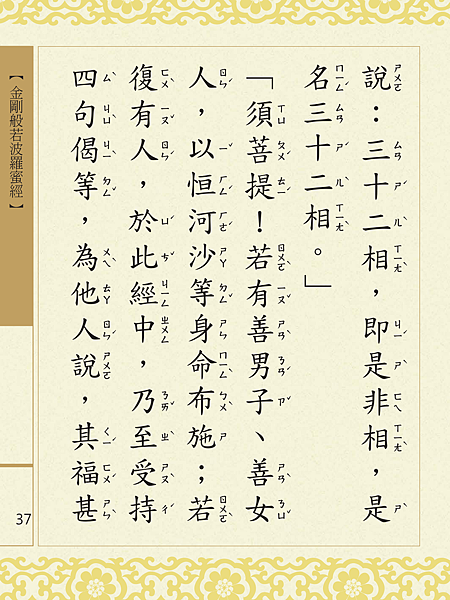 說：三十二相，即是非相，是
名三十二相。」
「須菩提！若有善男子、善女
人，以恒河沙等身命布施；若
復有人，於此經中，乃至受持
四句偈等，為他人說，其福甚
【金剛般若波羅蜜經】
37